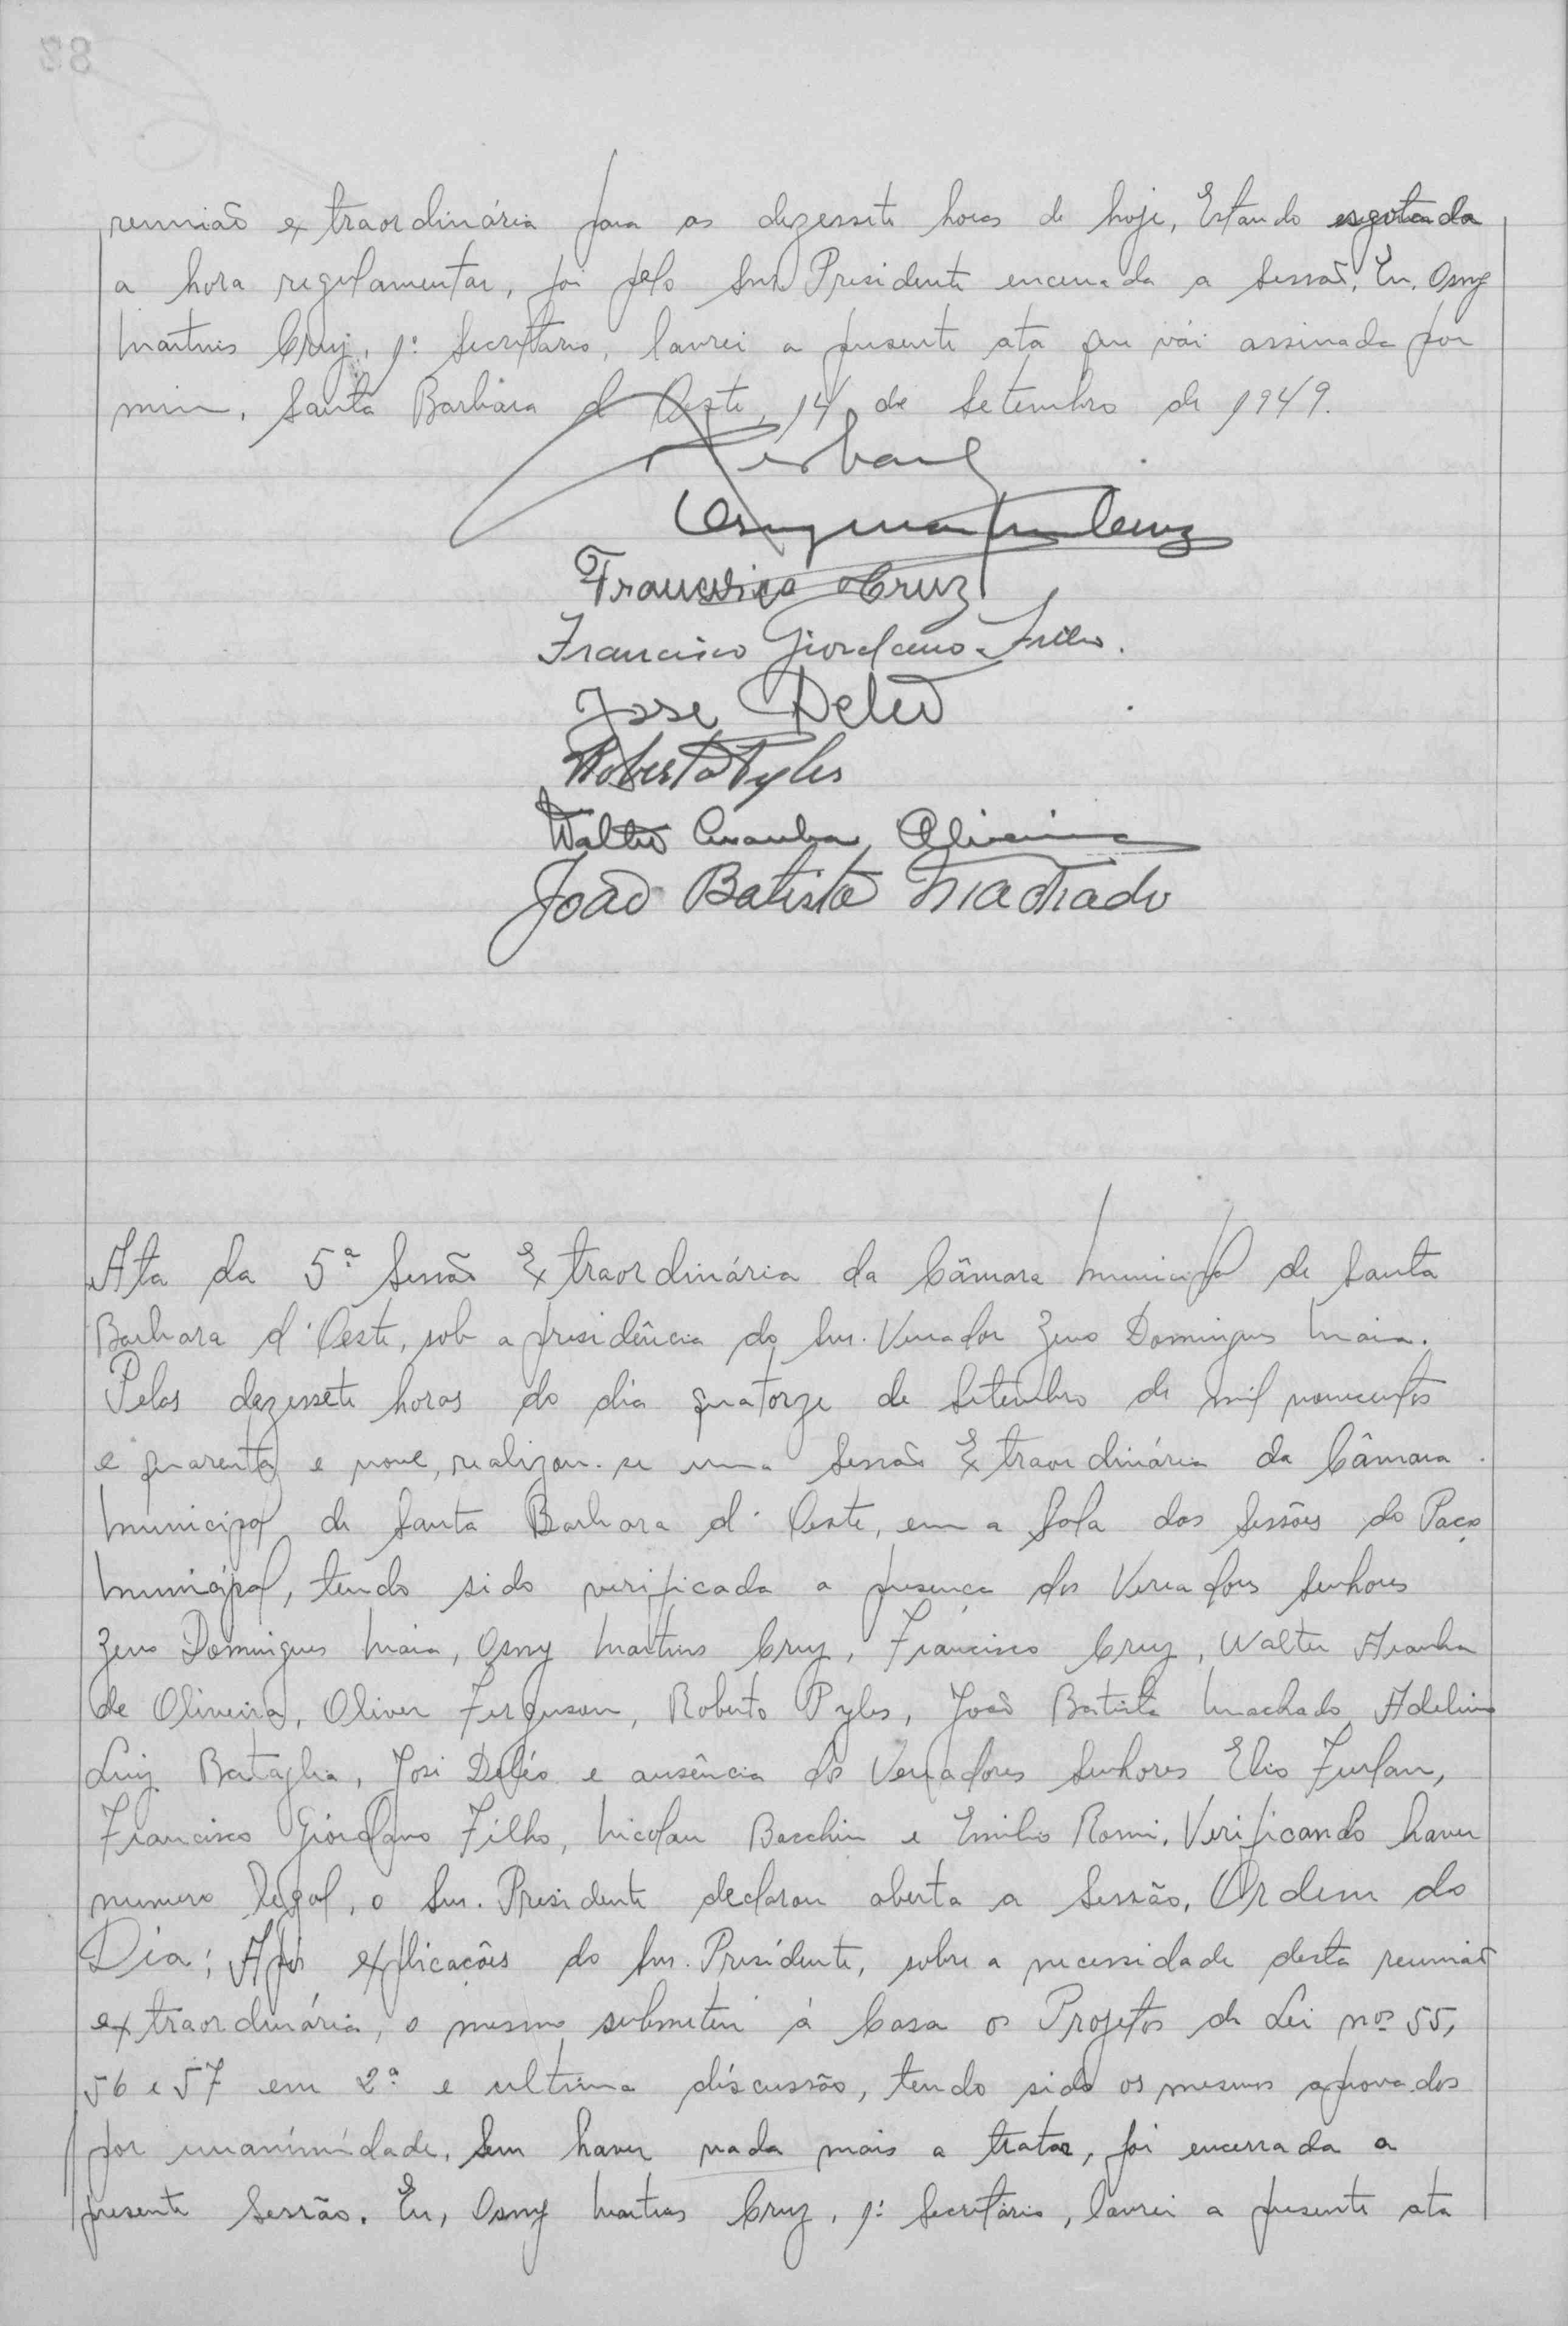 reunião extraordinária para as dezessete horas de hoje, Estando esgotada
a hora regulamentar, foi pelo Snr. Presidente encerrada a Sessão, Eu, Osny
Martins Cruz, 1º Secretário, lavrei a presente ata que vái assinada por
mim, Santa Barbara d'Oeste, 14 de Setembro de 1949.
Osny Martins Cruz
Francisco Cruz
Francisco Giordano Filho.
Jose Deleo
Roberto Pyles
Walter Aranha Oliveira
João Batista Machado
Ata da 5ª Sessão Extraordinária da Câmara Municipal de Santa
Barbara d'Oeste, sob a presidência do Snr. Vereador Zeno Domingues Maia.
Pelas dezessete horas do dia quatorze de Setembro de mil novecentos
e quarenta e nove, realizou-se uma Sessão Extraordinária da Câmara
Municipal de Santa Barbara d'Oeste, em a Sala das Sessões do Paço
Municipal, tendo sido verificada a presença dos Vereadores Senhores
Zeno Domingues Maia, Osny Martins Cruz, Francisco Cruz, Walter Aranha
de Oliveira, Oliver Ferguson, Roberto Pyles, João Batista Machado, Adelino
Luiz Bataglia, José Deléo e ausência dos Vereadores Senhores Elio Furlan,
Francisco Giordano Filho, Nicolau Bacchin e Emilio Romi. Verificando haver
numero legal, o Snr. Presidente declarou aberta a Sessão. Ordem do
Dia: Após explicações do Snr. Presidente, sobre a necessidade desta reunião
extraordinária, o mesmo submeteu á Casa os Projetos de Lei nos 55,
56 e 57 em 2ª e ultima discussão, tendo sido os mesmos aprovados
por unanimidade. Sem haver nada mais a tratar, foi encerrada a
presente Sessão. Eu, Osny Martins Cruz, 1º Secretário, lavrei a presente ata